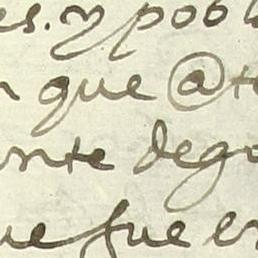 es. y pobl
n que @te
ante dego
ue fue en